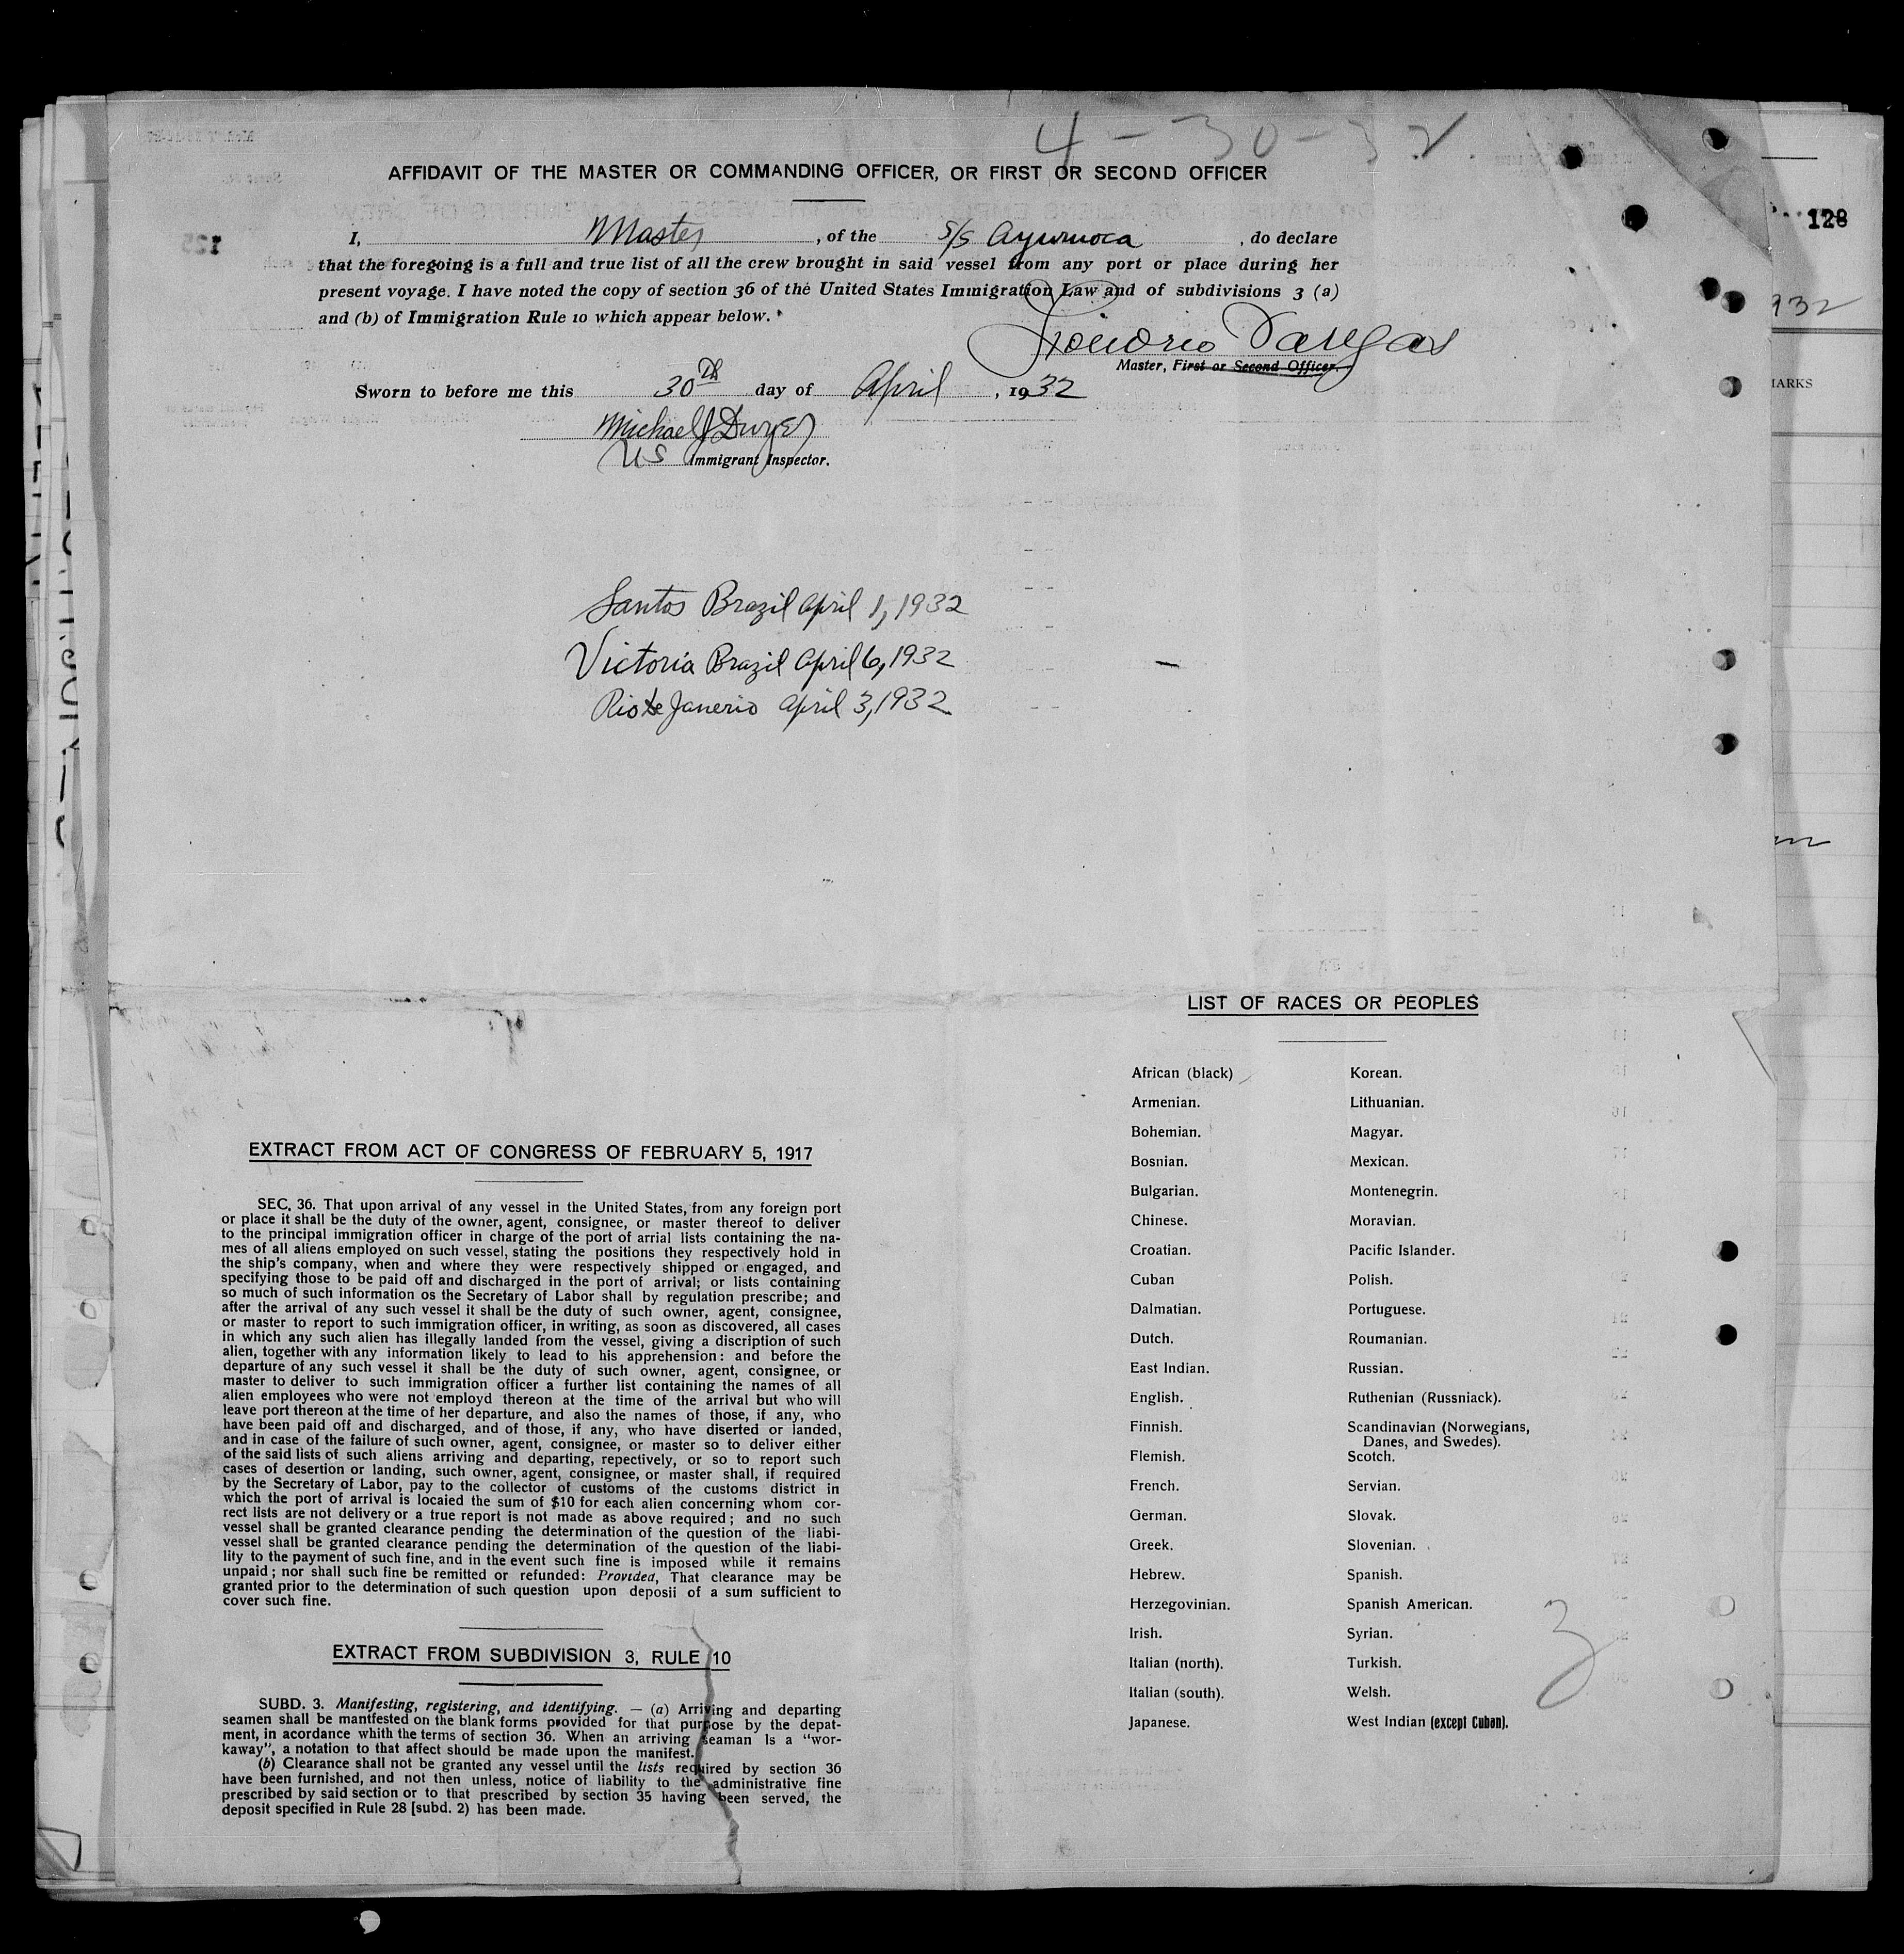 4-30-32
AFFIDAVIT OF THE MASTER OR COMMANDING OFFICER, OR FIRST OR SECOND OFFICER
128
I, Master, of the S/S Ayuruoca, do declare
that the foregoing is a full and true list of all the crew brought in said vessel from any port or place during her
present voyage. I have noted the copy of section 36 of the United States Immigration Law and of subdivisions 3 (a)
and (b) of Immigration Rule 10 which appear below.
932
Vargas
Master, First or Second Officer.
ARKS
Sworn to before me this 30th day of April, 1932
Michael J Dwyer
US Immigrant Inspector.
Santos Brazil April 1, 1932
Victoria Brazil April 6, 1932
Rio de Janerio April 3, 1932
LIST OF RACES OR PEOPLES
African (black)
Armenian.
Bohemian.
Bosnian.
Bulgarian.
Chinese.
Croatian.
Cuban
Dalmatian.
Dutch.
East Indian.
English.
Finnish.
Flemish.
French.
German.
Greek.
Hebrew.
Herzegovinian.
Irish.
Italian (north).
Italian (south).
Japanese.
Korean.
Lithuanian.
Magyar.
Mexican.
Montenegrin.
Moravian.
Pacific Islander.
Polish.
Portuguese.
Roumanian.
Russian.
Ruthenian (Russniack).
Scandinavian (Norwegians,
Danes, and Swedes).
Scotch.
Servian.
Slovak.
Slovenian.
Spanish.
Spanish American.
Syrian.
Turkish.
Welsh.
West Indian (except Cuban).
3
EXTRACT FROM ACT OF CONGRESS OF FEBRUARY 5, 1917
SEC. 36. That upon arrival of any vessel in the United States, from any foreign port
or place it shall be the duty of the owner, agent, consignee, or master thereof to deliver
to the principal immigration officer in charge of the port of arrial lists containing the na-
mes of all aliens employed on such vessel, stating the positions they respectively hold in
the ship's company, when and where they were respectively shipped or engaged, and
specifying those to be paid off and discharged in the port of arrival; or lists containing
so much of such information os the Secretary of Labor shall by regulation prescribe; and
after the arrival of any such vessel it shall be the duty of such owner, agent, consignee,
or master to report to such immigration officer, in writing, as soon as discovered, all cases
in which any such alien has illegally landed from the vessel, giving a discription of such
alien, together with any information likely to lead to his apprehension: and before the
departure of any such vessel it shall be the duty of such owner, agent, consignee, or
master to deliver to such immigration officer a further list containing the names of all
alien employees who were not employd thereon at the time of the arrival but who will
leave port thereon at the time of her departure, and also the names of those, if any, who
have been paid off and discharged, and of those, if any, who have diserted or landed,
and in case of the failure of such owner, agent, consignee, or master so to deliver either
of the said lists of such aliens arriving and departing, repectively, or so to report such
cases of desertion or landing, such owner, agent, consignee, or master shall, if required
by the Secretary of Labor, pay to the collector of customs of the customs district in
which the port of arrival is locaied the sum of $10 for each alien concerning whom cor-
rect lists are not delivery or a true report is not made as above required; and no such
vessel shall be granted clearance pending the determination of the question of the liabi-
vessel shall be granted clearance pending the determination of the question of the liabi-
lity to the payment of such fine, and in the event such fine is imposed while it remains
unpaid; nor shall such fine be remitted or refunded: Provided, That clearance may be
granted prior to the determination of such question upon deposii of a sum sufficient to
cover such fine.
EXTRACT FROM SUBDIVISION 3, RULE 10
SUBD. 3. Manifesting, registering, and identifying. — (a) Arriving and departing
seamen shall be mantfested on the blank forms provided for that purpose by the depat-
ment, in acordance whith the terms of section 36. When an arriving seaman Is a "wor-
kaway", a notation to that affect should be made upon the manifest.
(b) Clearance shall not be granted any vessel until the lists required by section 36
have been furnished, and not then unless, notice of liability to the administrative fine
prescribed by said section or to that prescribed by section 35 having been served, the
deposit specified in Rule 28 [subd. 2) has been made.